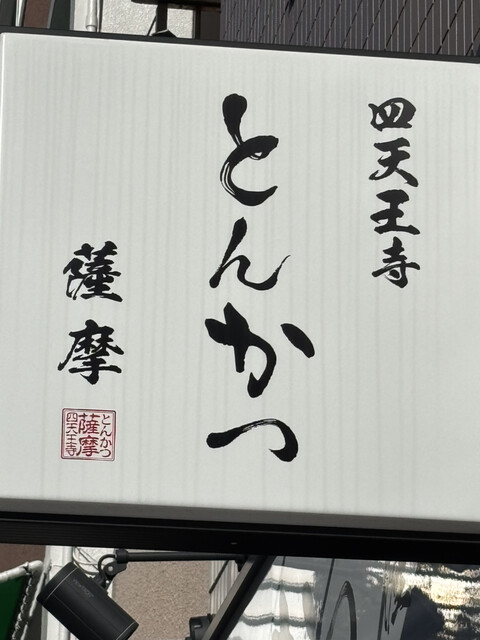 四天王寺
とんかつ
薩摩
とんかつ
薩摩
四天王寺